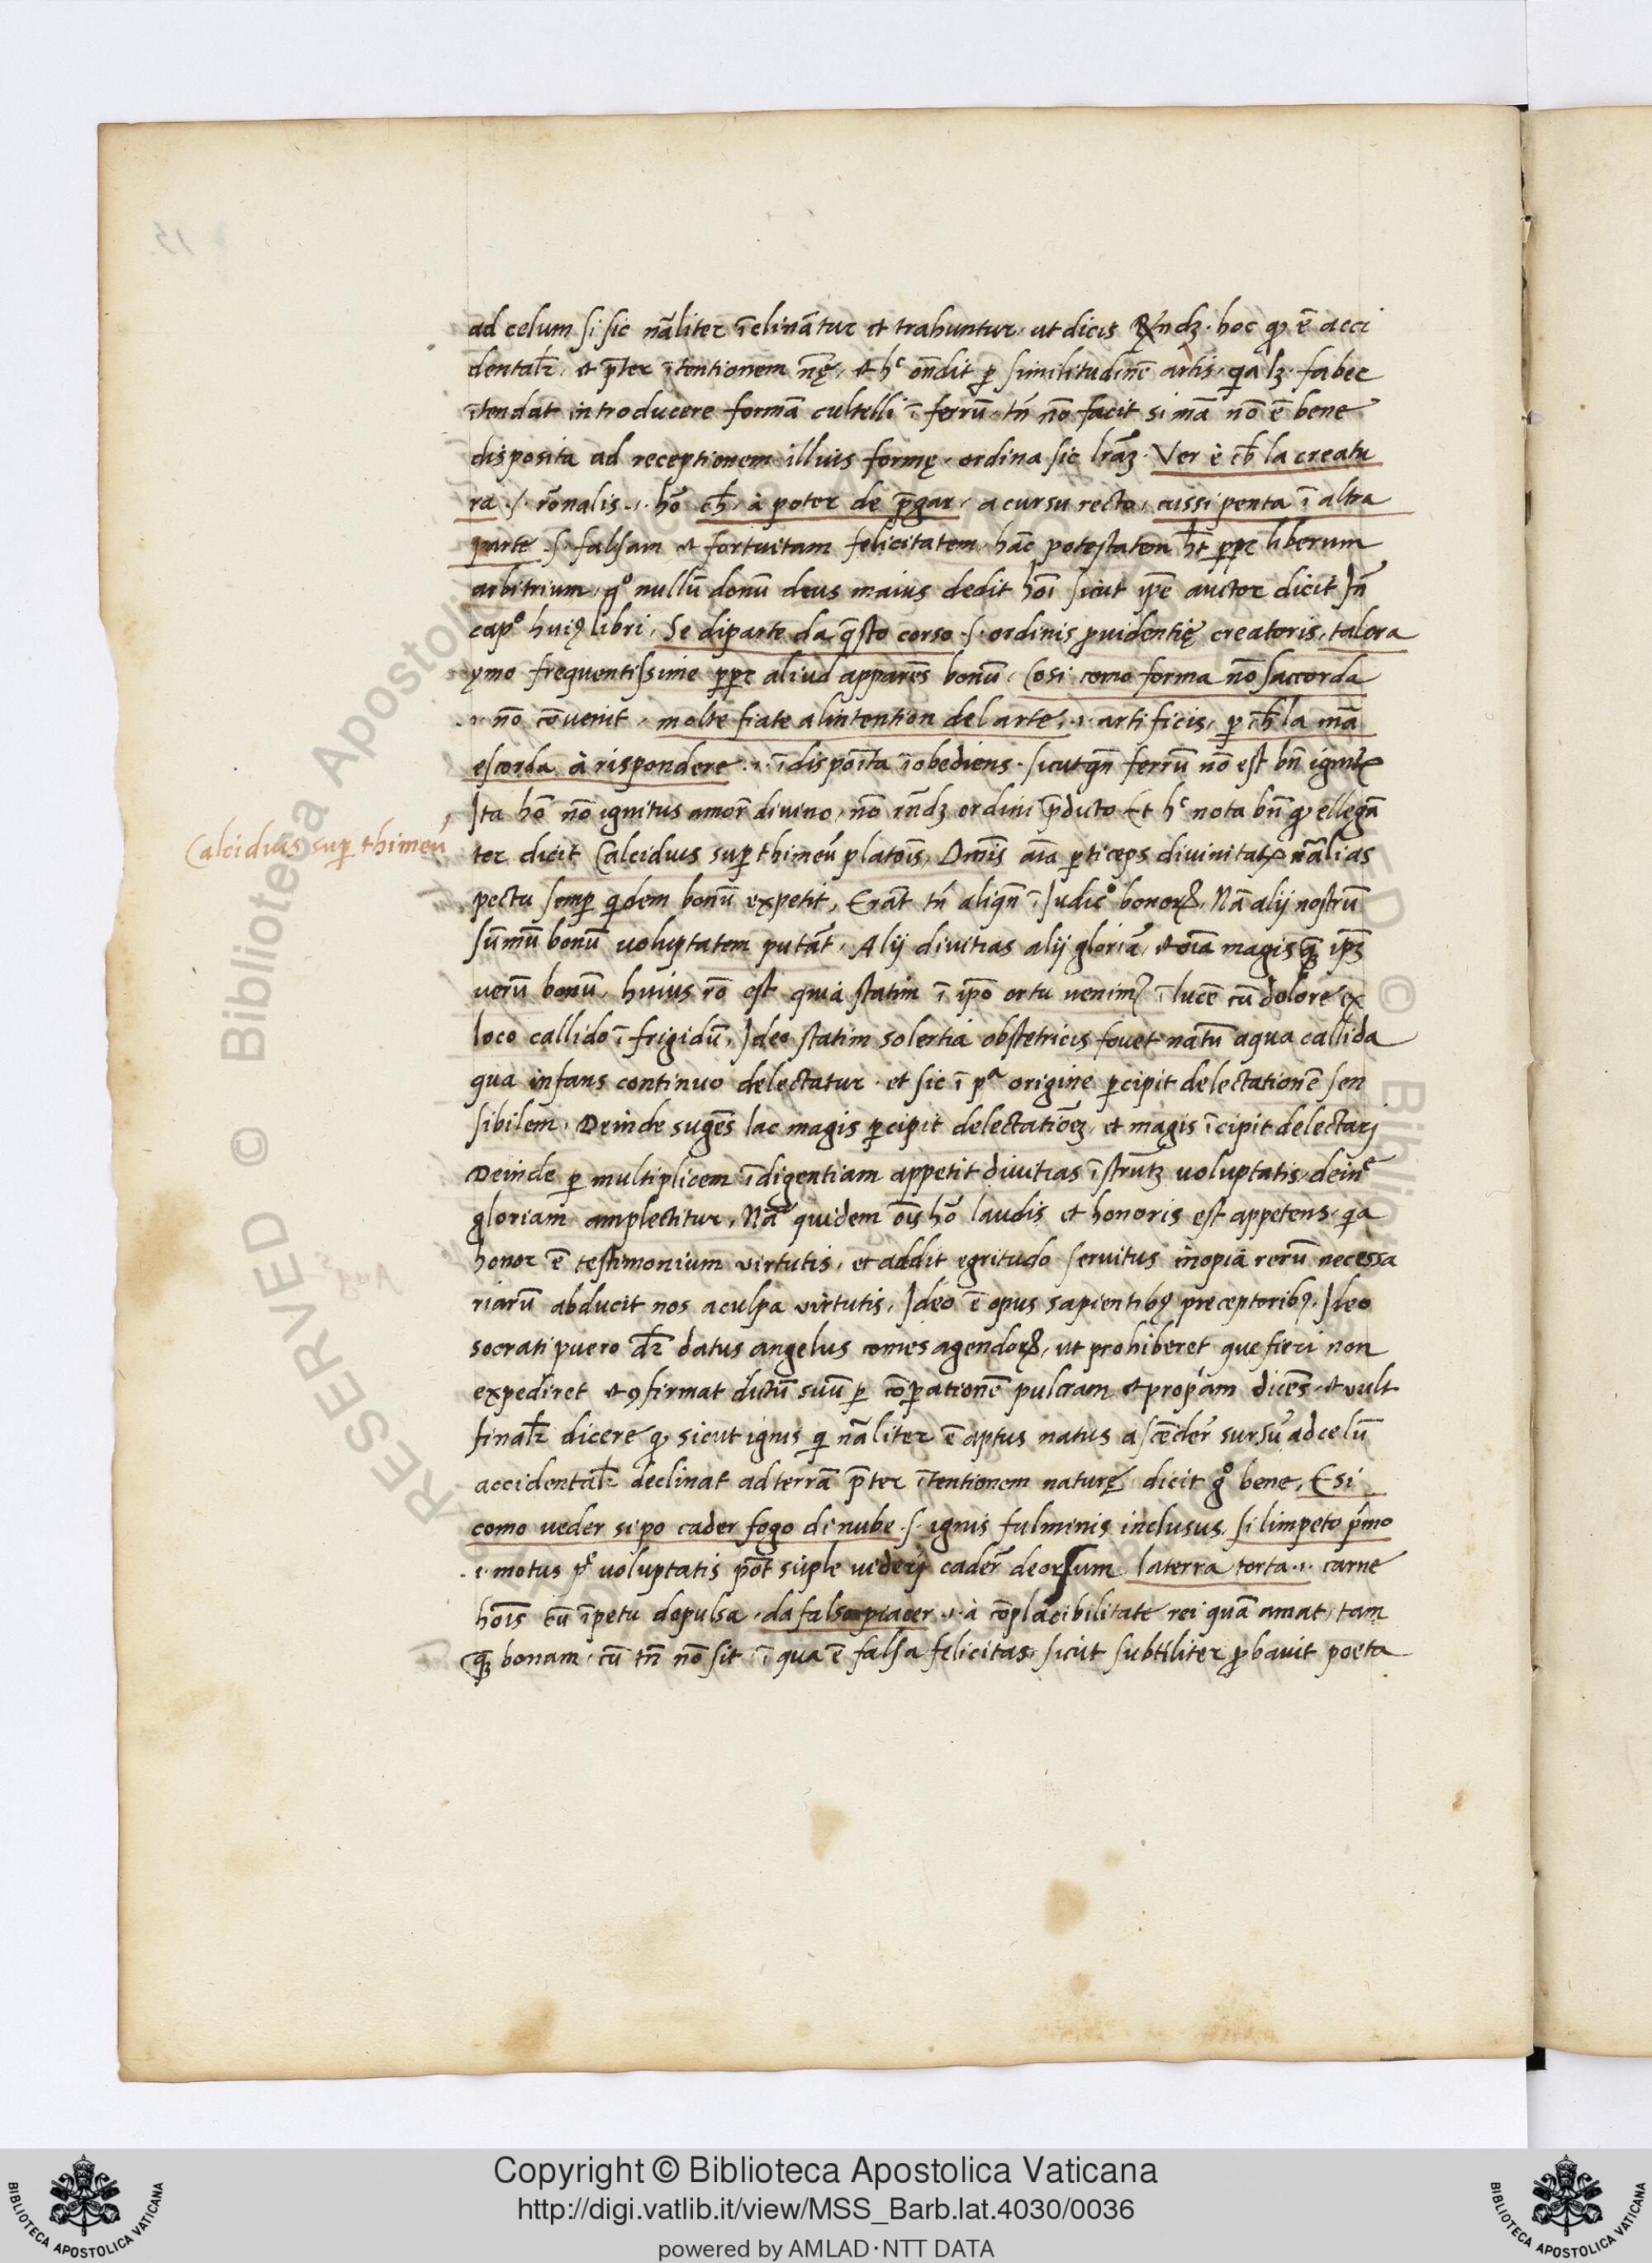 ad celum si sic nāliter īclinātur et trahuntur. ut dicis Rñdꝫ. hoc ꝙ ē acci
dentalr̄. et p̄ter ītentionem nr̄ę. et hᶜ on̄dit ꝑ similitudinē artis. qa lꝫ. faber
ītendat introducere formā cultelli ī ferrū. tn̄ nō facit si mā nō ē bene
disposita ad receptionem illius formę. ordina sic lrāꝫ. Ver è ch̄ la creatu
ra .s. rōnalis .i. hō ch̄. à poter de p̄gar. a cursu recto. cussi penta ī altra
parte .s. falsam et fortuitam felicitatem. hāc potestatem ht̄ ꝑꝑ liberum
arbitrium. qº nullū donū deus maius dedit hōi sicut ip̄e auctor dicit Jn̄
capº huiꝰ libri. Se diparte da q̄sto corso .s. ordinis ꝓuidentię creatoris. talora
ymo frequentissime ꝑꝑ aliud apparēs bonū. Cosi como forma nō saccorda
.i. nō cōuenit. molte fiate alintention del arte. .i. artificis. ꝑ ch̄ la mā
escorda à rispondere .i. īdispoīta īobediens. sicut qn̄ ferrū nō est bn̄ ignitū
Jta hō nō ignitus amor̄ diuino. nō rn̄dꝫ ordini p̄dicto Et hᶜ nota bn̄ ꝙ ellegā
Calcidius suꝑ thimeū
ter dicit Calcidius suꝑ thimeū platōis. Omīs aīa ꝑticeps diuinitatꝭ nāli as
pectu semꝑ qdem bonū expetit. Erāt tn̄ aliqn̄ ī Judicº bonoꝝ. Nā alij nostrū
sūmū bonū uoluptatem putāt. Alij diuitias alij gloriā. et oīa magis qꝫ ip̄ꝫ
uerū bonū. huius rō est quia statim ī ip̄o ortu uenimꝰ ī lucē cū dolore ex
loco callido ī frigidū. Jdeo statim solertia obstetricis fouet nātū aqua callida
qua infans continuo delectatur. et sic ī pᵃ origine ꝑcipit delectationē sen
sibilem. Deinde sugēs lac magis ꝑcipit delectatiōeꝫ. et magis īcipit delectari
Deinde ꝑ multiplicem īdigentiam appetit diuitias īstrūtꝫ uoluptatis. deinᵉ
gloriam amplectitur. Nā quidem oīs hō laudis et honoris est appetens. qa
honor ē testimonium virtutis. et addit egritudo seruitus inopia rerū necessa
riarū abducit nos a culpa virtutis. Jdeo ē opus sapientibꝰ preceptoribꝰ. Jdeo
socrati puero dr̄ datus angelus comes agendoꝝ. ut prohiberet que fieri non
expediret et ꝯfirmat dictū suū ꝑ cōꝑationē pulcram et propiam dicēs. et vult
finalr̄ dicere ꝙ sicut ignis qi nāliter ē aptus natus ascēder̄ sursū ad celū
accidentalr̄ declinat ad terrā p̄ter ītentionem naturę dicit gº bene. E si
como ueder si po cader fogo di nube .s. ignis fulminis inclusus. si limpeto pͥmo
.i. motus pᵉ uoluptatis pōt suple uiderj cader̄ deorsum la terra torta .i. carne
hoīs cū īpetu depulsa. da falso piacer .i. à cōplacibilitate rei quā amat. tam
qꝫ bonam. cū tn̄ nō sit. ī qua ē falsa felicitas. sicut subtiliter ꝓbauit poeta
Copyright © Biblioteca Apostolica Vaticana
http://digi.vatlib.it/view/MSS_Barb.lat.4030/0036
powered by AMLAD·NTT DATA